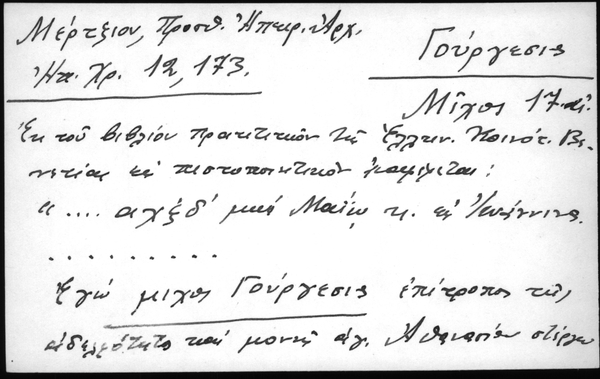 Μέρτζιον, Προσθ. Ἠπειρ. Ἀρχ.
Ἠπ. Χρ. 12, 173.
Γούργεσις
Μίχος 17 αἰ.
Ἐκ τοῦ βιβλίου πρακτικῶν τῆς Ἑλλην. Κοινότ. Βε-
νετίας ἐκ πιστοποιητικῶν
".... αχξδ' μαΐ Μαΐῳ κ. ἐκ Ἰωάννινα.
.........
Ἐγώ μιχος Γούργεσις ἐπίτροπος τῆς
ἀδελφότητο καί μονῆς ἁγ. Ἀθανασίου στέργω